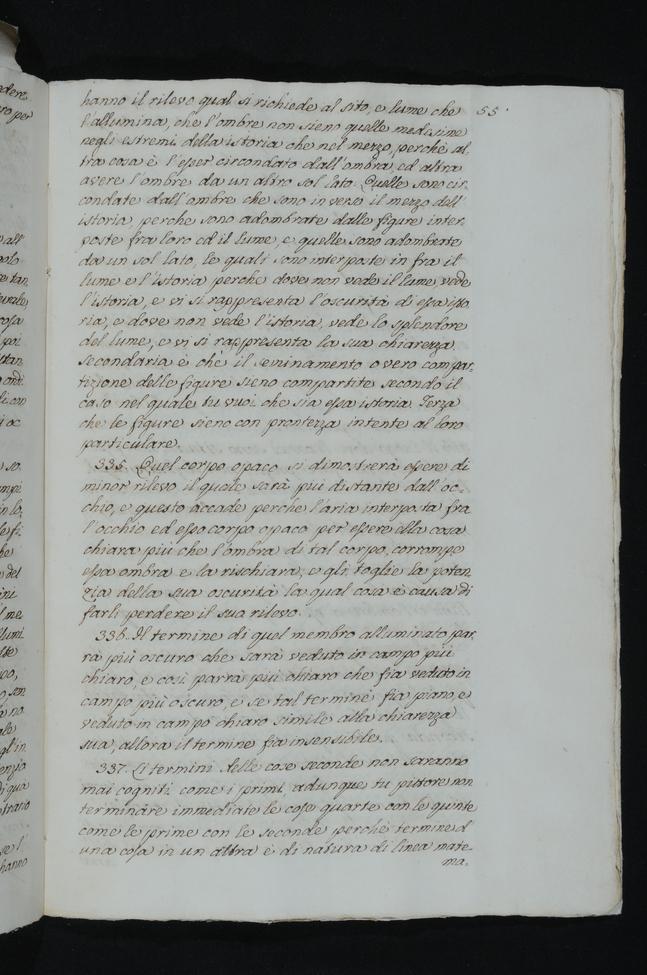 hanno il rilevo qual si richiede al sito, e lume che
55
l'allumina, che l'ombre non sieno quelle medesime
negli estremi della istoria che nel mezzo, perchè al-
tra cosa è l'esser circondato dall'ombra, ed altra
avere l'ombre da un altro sol lato. Quelle sono cir-
condate dall'ombre che sono in verso il mezzo dell'
istoria, perche sono adombrate dalle figure inter-
poste fra loro ed il lume, e quelle sono adombrate
da un sol lato, le quali sono interposte in fra il
lume e l'istoria perche dove non vede il lume vede
l'istoria, e vi si rappresenta l'oscurità di essa isto-
ria, e dove non vede l'istoria, vede lo splendore
del lume, e vi si rappresenta la sua chiarezza.
Secondaria è che il seminamento overo compar-
tizione delle figure sieno compartite secondo il
caso nel quale tu vuoi che sia essa istoria. Terza
che le figure sieno con prontezza intente al loro
particulare.
335. Quel corpo opaco si dimostrerà essere di
minor rilevo il quale sarà più distante dall'oc-
chio, e questo accade perche l'aria interposta fra
l'occhio ed esso corpo opaco per essere ella cosa
chiara più che l'ombra di tal corpo, corrompe
essa ombra e la rischiara, e gli toglie la poten-
zia della sua oscurità la qual cosa è causa di
farli perdere il sua rilevo.
336. Il termine di quel membro alluminato par-
rà più oscuro che sarà veduto in campo più
chiaro, e così parrà più chiaro che fia veduto in
campo più oscuro, e se tal termine fia piano, e
veduto in campo chiaro simile alla chiarezza
sua, allora il termine fia insensibile.
337. Li termini delle cose seconde non saranno
mai cogniti come i primi, adunque tu pittore non
terminare immediate le cose quarte con le quinte
come le prime con le seconde perchè termine d
una cosa in un altra è di natura di linea mate-
ma-